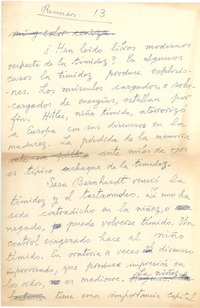 Recuerdos 13
¿Han leído libros modernos
respecto de la timidez? En algunos
casos la timidez produce explosio-
nes. Los músculos cargados, o sobre-
cargados de energías, estallan por
fin. Hitler, niño tímido, atemorizó
a Europa con sus discursos en la
madurez. La pérdida de la memoria
ante miles de ojos
es típico achaque de la timidez.
Sara Bernhardt venció la
timidez y el tartamudeo. El que ha
sido contradicho en la niñez, o
negado, puede volverse tímido. Un
control exagerado hace al niño
tímido. En oratoria a veces el discurso
improvisado, que produce impresión en
los oídos, es mediocre.
tiene una importancia capital